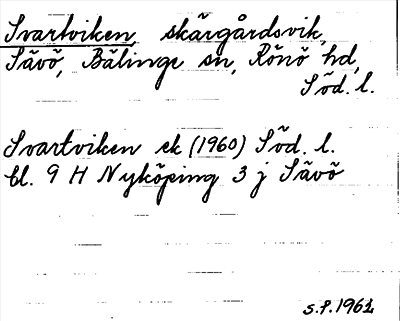 Svartviken, skärgårdsvik,
Sävö, Bälinge sn, Rönö hd,
Söd. l.
Svartviken ek (1960) Söd. l.
bl. 9 H Nyköping 3 j Sävö
s.f. 1961